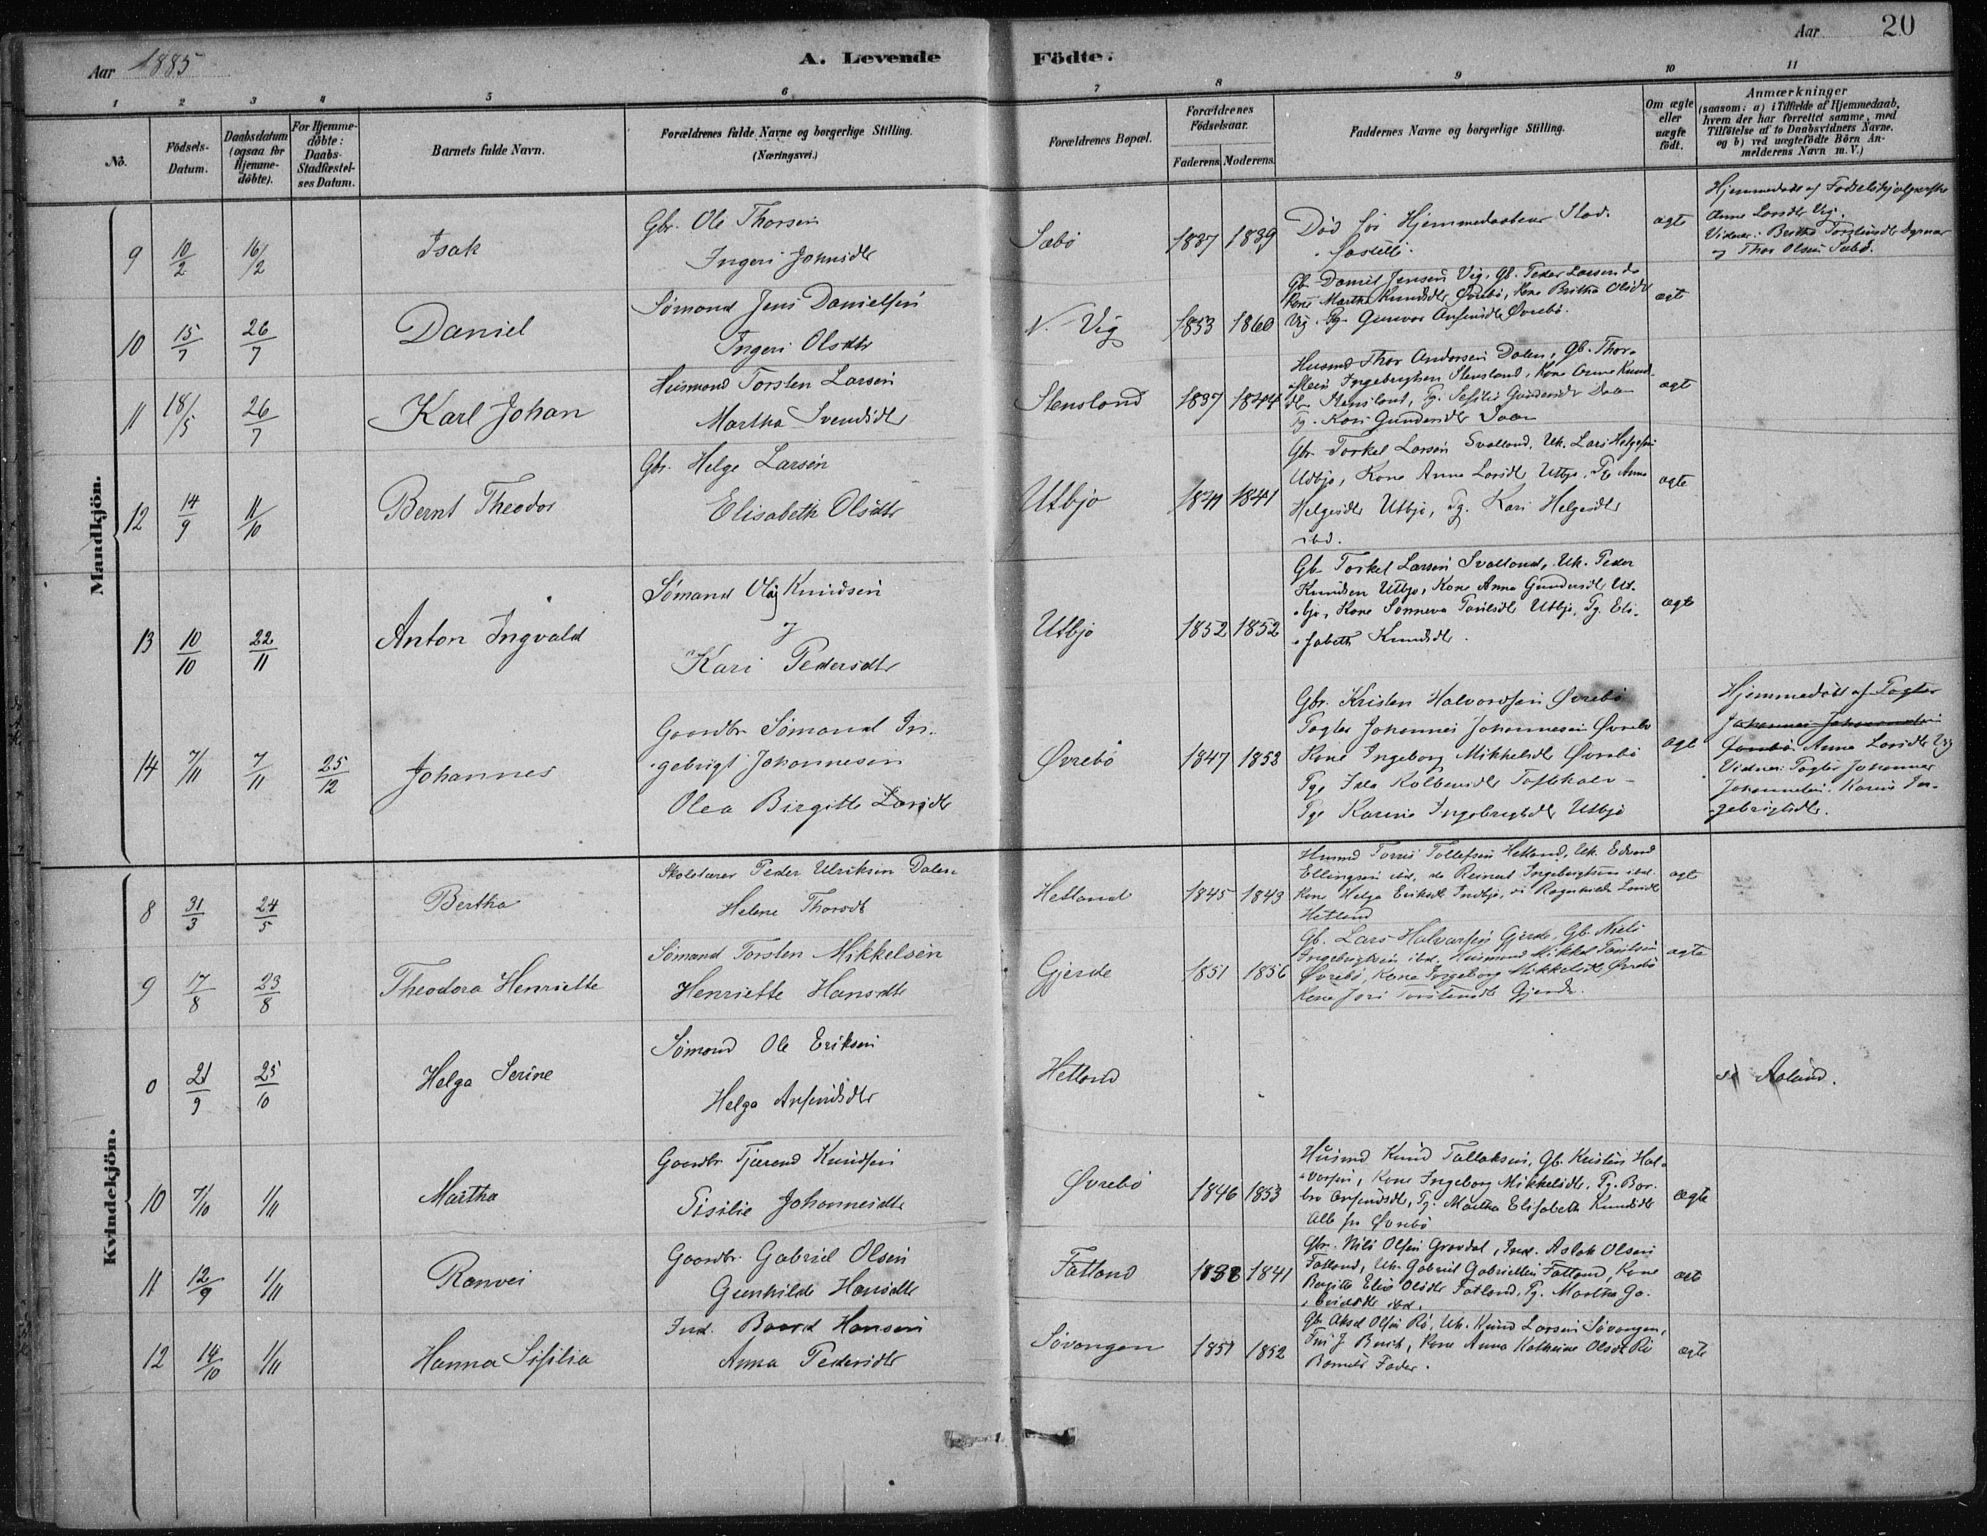 Aar 1885
A. Levende
Födte.
Aar
20
1 2 3 4 5 6 7 8 9 10 11
No.
Födsels-
Datum.
Daabsdatum
(ogsaa for
Hjemme-
döbte).
For Hjemme-
döbte:
Daabs-
Stadfæstel-
ses Datum.
Barnets fulde Navn.
Forældrenes fulde Navne og borgerlige Stilling.
(Næringsvei.)
Forældrenes Bopæl.
Forældrenes
Födselsaar.
Faderens. Moderens.
Faddernes Navne og borgerlige Stilling.
Om ægte
eller
uægte
födt.
Anmærkninger
(saasom: a) i Tilfælde af Hjemmedaab,
hvem der har forrettet samme, med
Tilföielse af to Daabsvidners Navne,
og b) ved uægtefödte Börn An-
melderens Navn m. V.)
Mandkjön.
9 10/2 16/2 Isak
Gbr. Ole Thorsen
Ingeri Johnsdtr
Sæbö 1837 1839
Död för Hjemmedaabens Stad-
fæstelse.
ægte
Hjemmedöbt af Födselshjælperske
Anna Larsdtr Vig.
Vidner: Bertha Torstensdtr
og Thor Olsen Sæbö.
10 15/7 26/7 Daniel
Sömand Jens Danielsen
Ingeri Olsdtr
N. Vig 1853 1860
Gb. Daniel Jensen Vig, Gb. Peder Larsen do
Kone Martha Knudsdtr Övrebö, Kone Britha Olsdtr
Vig. Pg. Gunvor Anfindsdtr Övrebö.
ægte
11 18/5 26/7 Karl Johan
Husmand Torsten Larsen
Martha Svendsdtr
Stensland 1837 1844
Husmd Thor Andersen Dalen, Gb. Thor-
stein Ingebrigtsen Stensland, Kone Anne Knud-
sdtr Stensland, Pg. Sesilie Gundersdtr
Pg. Kari Gundersdtr
ægte
12 14/9 11/10 Bernt Theodor
Gbr. Helge Larsen
Elisabeth Olsdtr
Utbjo 1841 1841
Gbr Torkel Larsen Svolland, Uk. Lars Helgesen
Udbjo, Kone Anna Larsdtr Utbjo, Pg Anna
Helgesdtr Utbjo, Pg. Kari Helgesdtr
ibd.
ægte
13 10/10 22/11 Anton Ingvald
Sömand Olaj Knudsen
Kari Pedersdtr
Utbjo 1852 1852
Gb Torkel Larsen Svolland, Uk. Peder
Knudsen Utbjo, Kone Anna Gundersdtr Ut-
bjo, Kone Sönneva Utbjo, Pg. Eli-
sabeth Knudsdtr.
ægte
14 7/11 7/11 25/12 Johannes
Gaardbr Sömand In-
gebrigt Johannesen
Olea Birgitte Larsdtr
Övrebö 1847 1853
Gbr. Kristen Halvordsen Övrebö
Fogter Johannes Johannesen Övrebö
Kone Ingeborg Mikkelsdtr Övrebö
Pge Ida Kolbensdtr Toftekalv
Pge Karine Ingebrigtsdtr Utbjo
ægte
Hjemmedöbt af Fogter
Johannes Johannesen
Övrebö Anna Larsdtr Vig
Vidner: Fogter Johannes
Johannesen. Karine In-
gebrigtsdtr.
Kvindekjön.
8 31/3 24/5 Bertha
Skolelærer Peder Ulriksen Dalen
Helene Thorsdt
Hetland 1845 1843
Husmd Torris Tollefsen Hetland, Uk. Edvard
Ellingsen ibd, do Reinert Ingebrigtsen ibd.
Kone Helga Eriksdt Indbjo, Ragnhilde Larsdt
Hetland
ægte
9 17/8 23/8 Theodora Henriette
Sömand Torsten Mikkelsen
Henriette Hansdtr
Gjerde 1851 1856
Gb. Lars Halvorsen Gjerde, Gb. Niels
Ingebrigtsen ibd, Husmand Mikkel
Övrebö, Kone Ingeborg Mikkelsdtr Övrebö
Kone Torstensdtr Gjerde.
ægte
0 21/9 25/10 Helga Serine
Sömand Ole Eriksen
Helga Anfindsdtr
Hetland
se Aaland.
10 7/10 1/11 Martha
Gaardbr Tjerand Knudsen
Sisilie Johannesdtr
Övrebö 1846 1853
Husmd Knud Tollaksen, Gb. Kristen Hal-
vorsen, Kone Ingeborg Mikkelsdtr, Pg. Bor-
bro Anfindsdtr, Pg. Martha Elisabeth Knudsdtr
Alle fra Övrebö
ægte
11 12/9 1/11 Ranvei
Gaardbr. Gabriel Olsen
Gunhilde Hansdtr
Fatland 1838 1841
Gbr. Nils Olsen Gravdal, Ind. Aslak Olsen
Fatland, Uk. Gabriel Gabrielsen Fatland, Kone
Birgitte Elie Olsdtr Fatland, Pg. Martha Ga-
brielsdtr ibd.
ægt
12 14/10 1/11 Hanna Sisilia
Ind. Baard Hansen
Anna Pedersdtr
Sövangen 1851 1852
Gb Aksel Olsen Rö, Uk. Knud Larsen Sövangen,
J Busch, Kone Anna Kathrine Olsdt Rö
Barnets Fader.
ægte